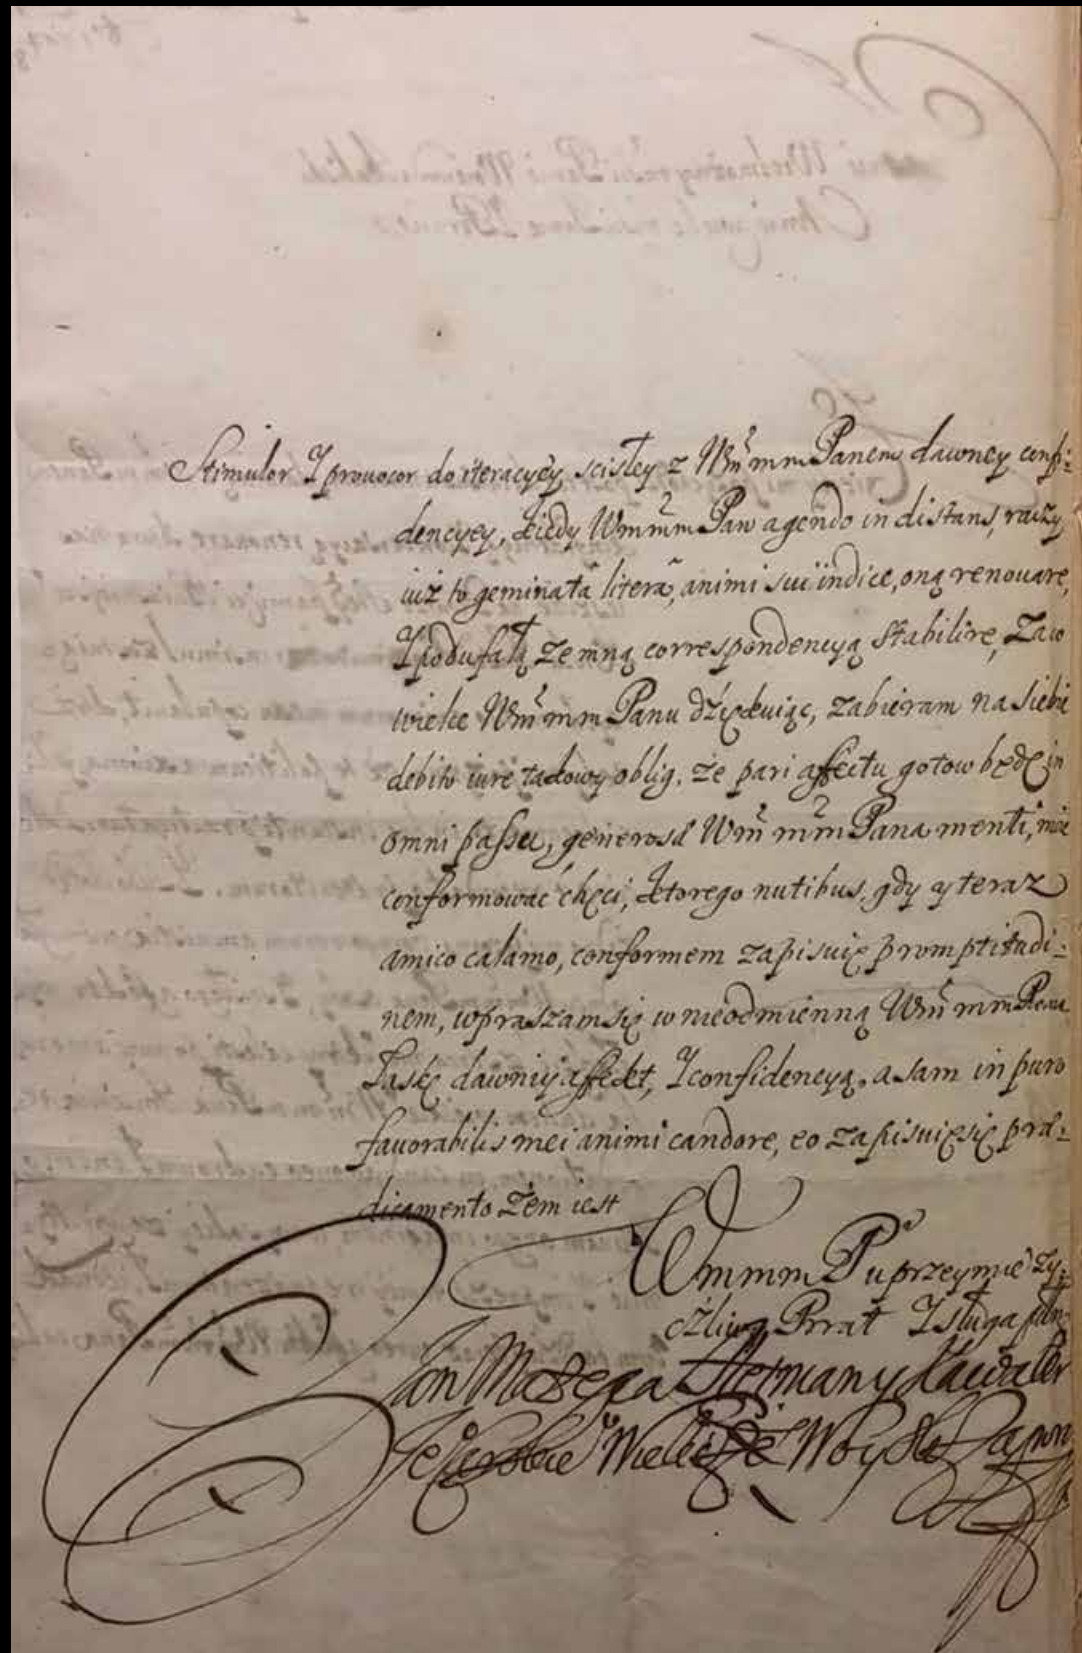 Stimulor Y prouocor do iteracyey scisłey z Wm̃ mm Panem dawney confi:
dencyey, kiedy Wmm̃m Pan agendo in distans, raczy
iuż to geminatâ literâ, animi sui indice, oną renouare,
Y podufałą ze mną correspondencyą stabilire, za co
wielce Wm̃ mm Panu dźiękuiąc, zabieram na siebie
debito iure takowy oblig, że pari affectu gotow będę in
omni passu, generosæ Wm̃ mm̃ Pana menti, moie
conformować chęci, ktorego nutibus, gdy y teraz
amico calamo, conformem zapisuię promptitudi:
nem, wpraszam się w nieodmienną Wm̃ mm Pana
Łaskę dawny affekt, Y confidencyą, a sam in puro
fauorabilis mei animi candore, eo zapisuię się præ:
dicamento żem iest
Wmmm P uprzeymie zy:
czliwy Brat Y sługa
Jan Mazepa Hetman y Kawaler
Woyska Zapor